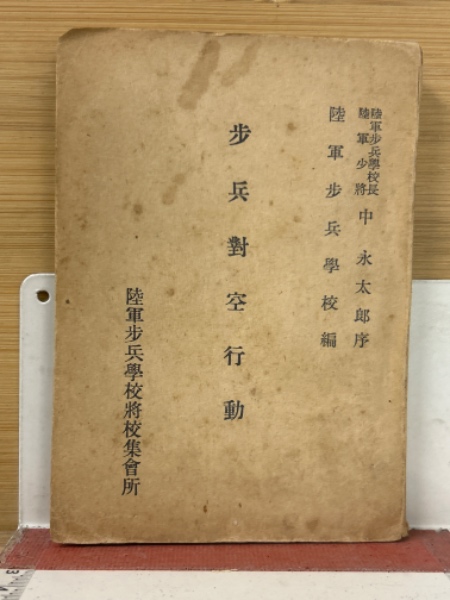 陸軍步兵學校長
陸軍少將
中永太郎序
陸軍步兵學校編
步兵對空行動
陸軍步兵學校將校集會所